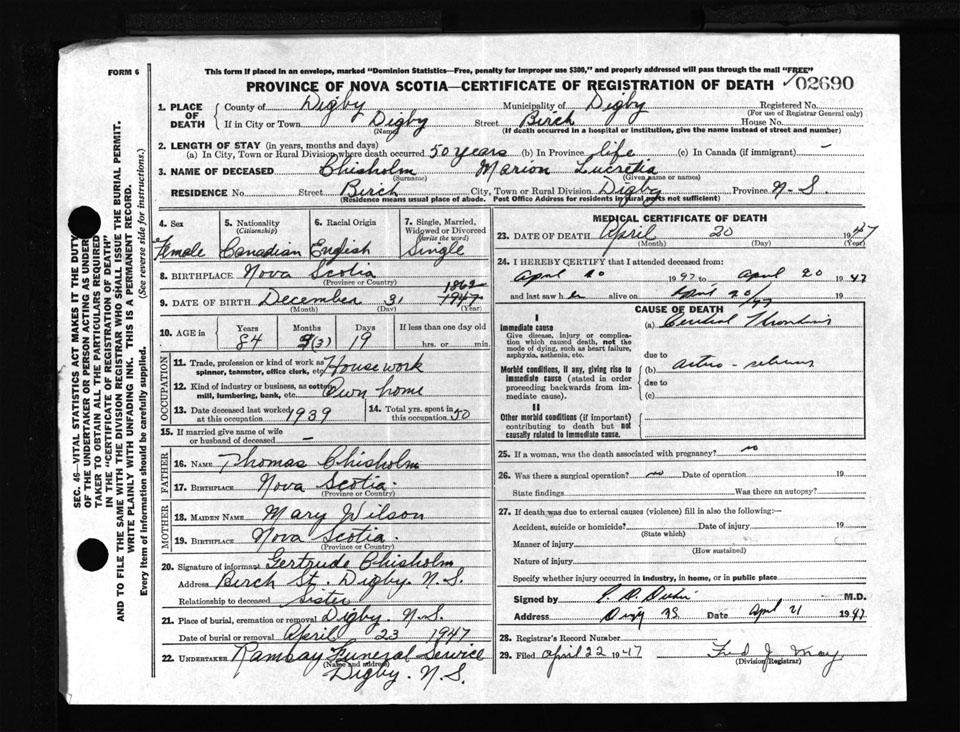 FORM 6
This form if placed in an envelope, marked "Dominion Statistics—Free, penalty for improper use $300," and properly addressed will pass through the mail "FREE"
PROVINCE OF NOVA SCOTIA—CERTIFICATE OF REGISTRATION OF DEATH 02690
SEC. 46—VITAL STATISTICS ACT MAKES IT THE DUTY
OF THE UNDERTAKER OR PERSON ACTING AS UNDER-
TAKER TO OBTAIN ALL THE PARTICULARS REQUIRED
IN THE "CERTIFICATE OF REGISTRATION OF DEATH"
AND TO FILE THE SAME WITH THE DIVISION REGISTRAR WHO SHALL ISSUE THE BURIAL PERMIT.
WRITE PLAINLY WITH UNFADING INK. THIS IS A PERMANENT RECORD.
Every item of information should be carefully supplied. (See reverse side for instructions.)
1. PLACE OF DEATH County of Digby Municipality of Digby Registered No.
(For use of Registrar General only)
If in City or Town Digby Street Birch House No.
(Name) (If death occurred in a hospital or institution, give the name instead of street and number)
2. LENGTH OF STAY (in years, months and days)
(a) In City, Town or Rural Division where death occurred 50 years (b) In Province life (c) In Canada (if immigrant) —
3. NAME OF DECEASED Chisholm Marion Lucretia
(Surname) (Given name or names)
RESIDENCE No. Street Birch City, Town or Rural Division Digby Province N-S.
(Residence means usual place of abode. Post Office Address for residents in rural parts not sufficient)
4. Sex 5. Nationality (Citizenship) 6. Racial Origin 7. Single, Married, Widowed or Divorced (Write the word)
Female Canadian English Single
8. BIRTHPLACE Nova Scotia
(Province or Country)
1862
9. DATE OF BIRTH December 31 1947
(Month) (Day) (Year)
10. AGE in Years Months Days If less than one day old
84 (3) 19 hrs. or min.
OCCUPATION
11. Trade, profession or kind of work as spinner, teamster, office clerk, etc. House work
12. Kind of industry or business, as cotton mill, lumbering, bank, etc. Own home
13. Date deceased last worked at this occupation 1939 14. Total yrs. spent in this occupation 50
15. If married give name of wife or husband of deceased —
FATHER
16. NAME Thomas Chisholm
17. BIRTHPLACE Nova Scotia.
(Province or Country)
MOTHER
18. MAIDEN NAME Mary Wilson
19. BIRTHPLACE Nova Scotia.
(Province or Country)
20. Signature of informant Gertrude Chisholm
Address Birch St. Digby. N.S.
Relationship to deceased Sister
21. Place of burial, cremation or removal Digby. N.S.
Date of burial or removal April 23 1947
22. UNDERTAKER Ramsay Funeral Service
(Name and address) Digby. N.S.
MEDICAL CERTIFICATE OF DEATH
23. DATE OF DEATH April 20 1947
(Month) (Day) (Year)
24. I HEREBY CERTIFY that I attended deceased from:
April 20 1947 to April 20 1947
and last saw her alive on April 20/47 19
CAUSE OF DEATH
I
Immediate cause (a) Thrombosis
Give disease, injury or complication which caused death, not the mode of dying, such as heart failure, asphyxia, asthenia, etc.
due to
Morbid conditions, if any, giving rise to immediate cause (stated in order proceeding backwards from immediate cause). (b)
due to
(c)
II
Other morbid conditions (if important) contributing to death but not causally related to immediate cause.
25. If a woman, was the death associated with pregnancy? no
26. Was there a surgical operation? no Date of operation 19
State findings Was there an autopsy?
27. If death was due to external causes (violence) fill in also the following:—
Accident, suicide or homicide? Date of injury 19
(State which)
Manner of injury
(How sustained)
Nature of injury
Specify whether injury occurred in industry, in home, or in public place
Signed by M.D.
Address Digby NS Date April 21 1947
28. Registrar's Record Number
29. Filed April 22 1947 Fred J. May
(Division Registrar)